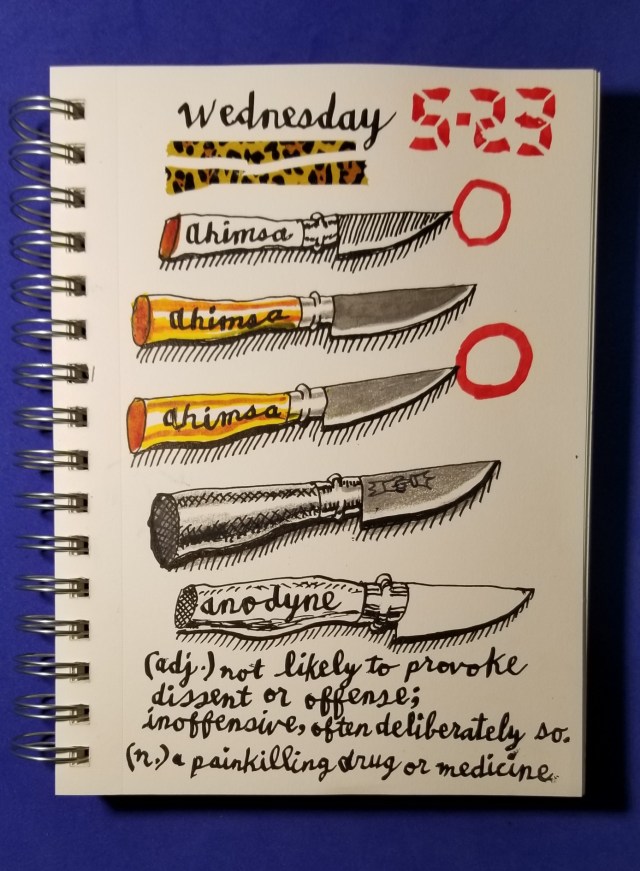 Wednesday 5-23
ahimsa
ahimsa
ahimsa
anodyne
(adj.) not likely to provoke
dissent or offense;
inoffensive, often deliberately so.
(n.) a painkilling drug or medicine